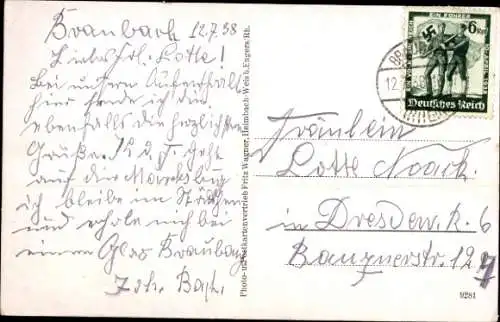 Braubach 12.7.38
Liebes Frl. Lotte!
Bei unserm Aufenthalt
hier sende ich
ebenfalls die herzlichsten
Grüße. geht
auf die Marksburg
ich bleibe im Städtchen
und erhole mich bei
einem Glas Braubach
Joh.
Photo- u. Postkartenvertrieb Fritz Wagner, Heimbach-Weis b. Engers/Rh.
EIN FÜHRER
6
Deutsches Reich
12.
Fräulein
Lotte Noack
in Dresden R. 6
Bauznerstr. 12
9281